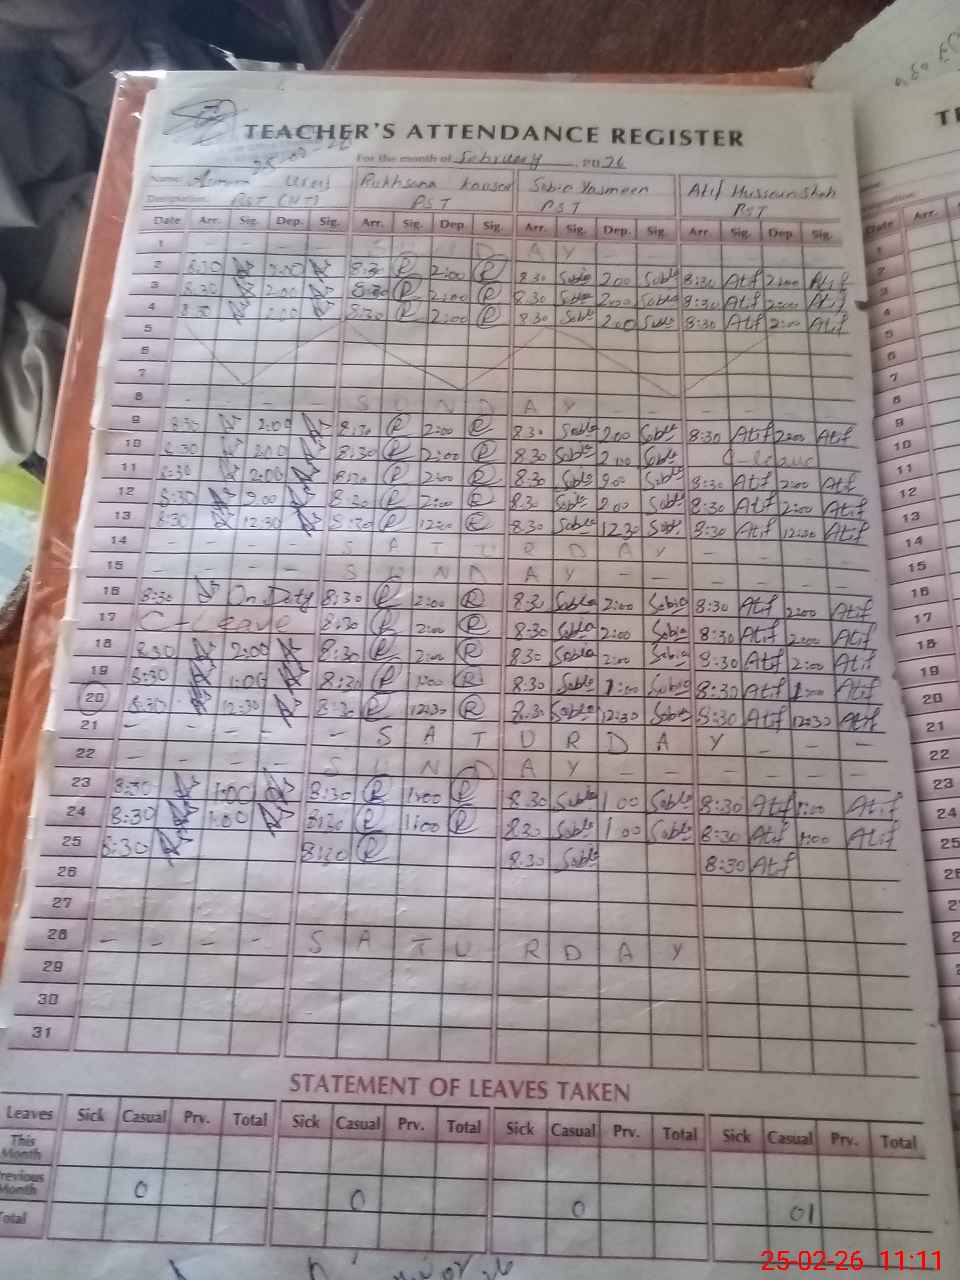 TEACHER'S ATTENDANCE REGISTER
For the month of February 2026
Name: Rukhsana Kausar Sobia Yasmeen Atif Hussain Shah
Designation: PST (NT) PST PST PST
Date Arr. Sig. Dep. Sig. Arr. Sig. Dep. Sig. Arr. Sig. Dep. Sig. Arr. Sig. Dep. Sig.
1 - - - - S U N D A Y - - - - - -
2 8:30 2:00 8:30 R 2:00 R 8:30 Sobia 2:00 Sobia 8:30 Atif 2:00 Atif
3 8:30 2:00 8:30 R 2:00 R 8:30 Sobia 2:00 Sobia 8:30 Atif 2:00 Atif
4 8:30 2:00 8:30 R 2:00 R 8:30 Sobia 2:00 Sobia 8:30 Atif 2:00 Atif
5
6
7
8 - - - - S U N D A Y - - - - - -
9 8:30 2:00 8:30 R 2:00 R 8:30 Sobia 2:00 Sobia 8:30 Atif 2:00 Atif
10 8:30 2:00 8:30 R 2:00 R 8:30 Sobia 2:00 Sobia C-leave
11 8:30 2:00 8:30 R 2:00 R 8:30 Sobia 2:00 Sobia 8:30 Atif 2:00 Atif
12 8:30 2:00 8:30 R 2:00 R 8:30 Sobia 2:00 Sobia 8:30 Atif 2:00 Atif
13 8:30 12:30 8:30 R 12:30 R 8:30 Sobia 12:30 Sobia 8:30 Atif 12:30 Atif
14 - - - - S A T U R D A Y - - - -
15 - - - - S U N D A Y - - - - - -
16 8:30 On Duty 8:30 R 2:00 R 8:30 Sobia 2:00 Sobia 8:30 Atif 2:00 Atif
17 C-Leave 8:30 R 2:00 R 8:30 Sobia 2:00 Sobia 8:30 Atif 2:00 Atif
18 8:30 2:00 8:30 R 2:00 R 8:30 Sobia 2:00 Sobia 8:30 Atif 2:00 Atif
19 8:30 1:00 8:30 R 1:00 R 8:30 Sobia 1:00 Sobia 8:30 Atif 1:00 Atif
20 8:30 12:30 8:30 R 12:30 R 8:30 Sobia 12:30 Sobia 8:30 Atif 12:30 Atif
21 - - - - - S A T U R D A Y - - -
22 - - - - S U N D A Y - - - - - -
23 8:30 1:00 8:30 R 1:00 R 8:30 Sobia 1:00 Sobia 8:30 Atif 1:00 Atif
24 8:30 1:00 8:30 R 1:00 R 8:30 Sobia 1:00 Sobia 8:30 Atif 1:00 Atif
25 8:30 8:30 R 8:30 Sobia 8:30 Atif
26
27
28 - - - - S A T U R D A Y
29
30
31
STATEMENT OF LEAVES TAKEN
Leaves Sick Casual Prv. Total Sick Casual Prv. Total Sick Casual Prv. Total Sick Casual Prv. Total
This Month
Previous Month 0 0 0 01
Total
25-02-26 11:11